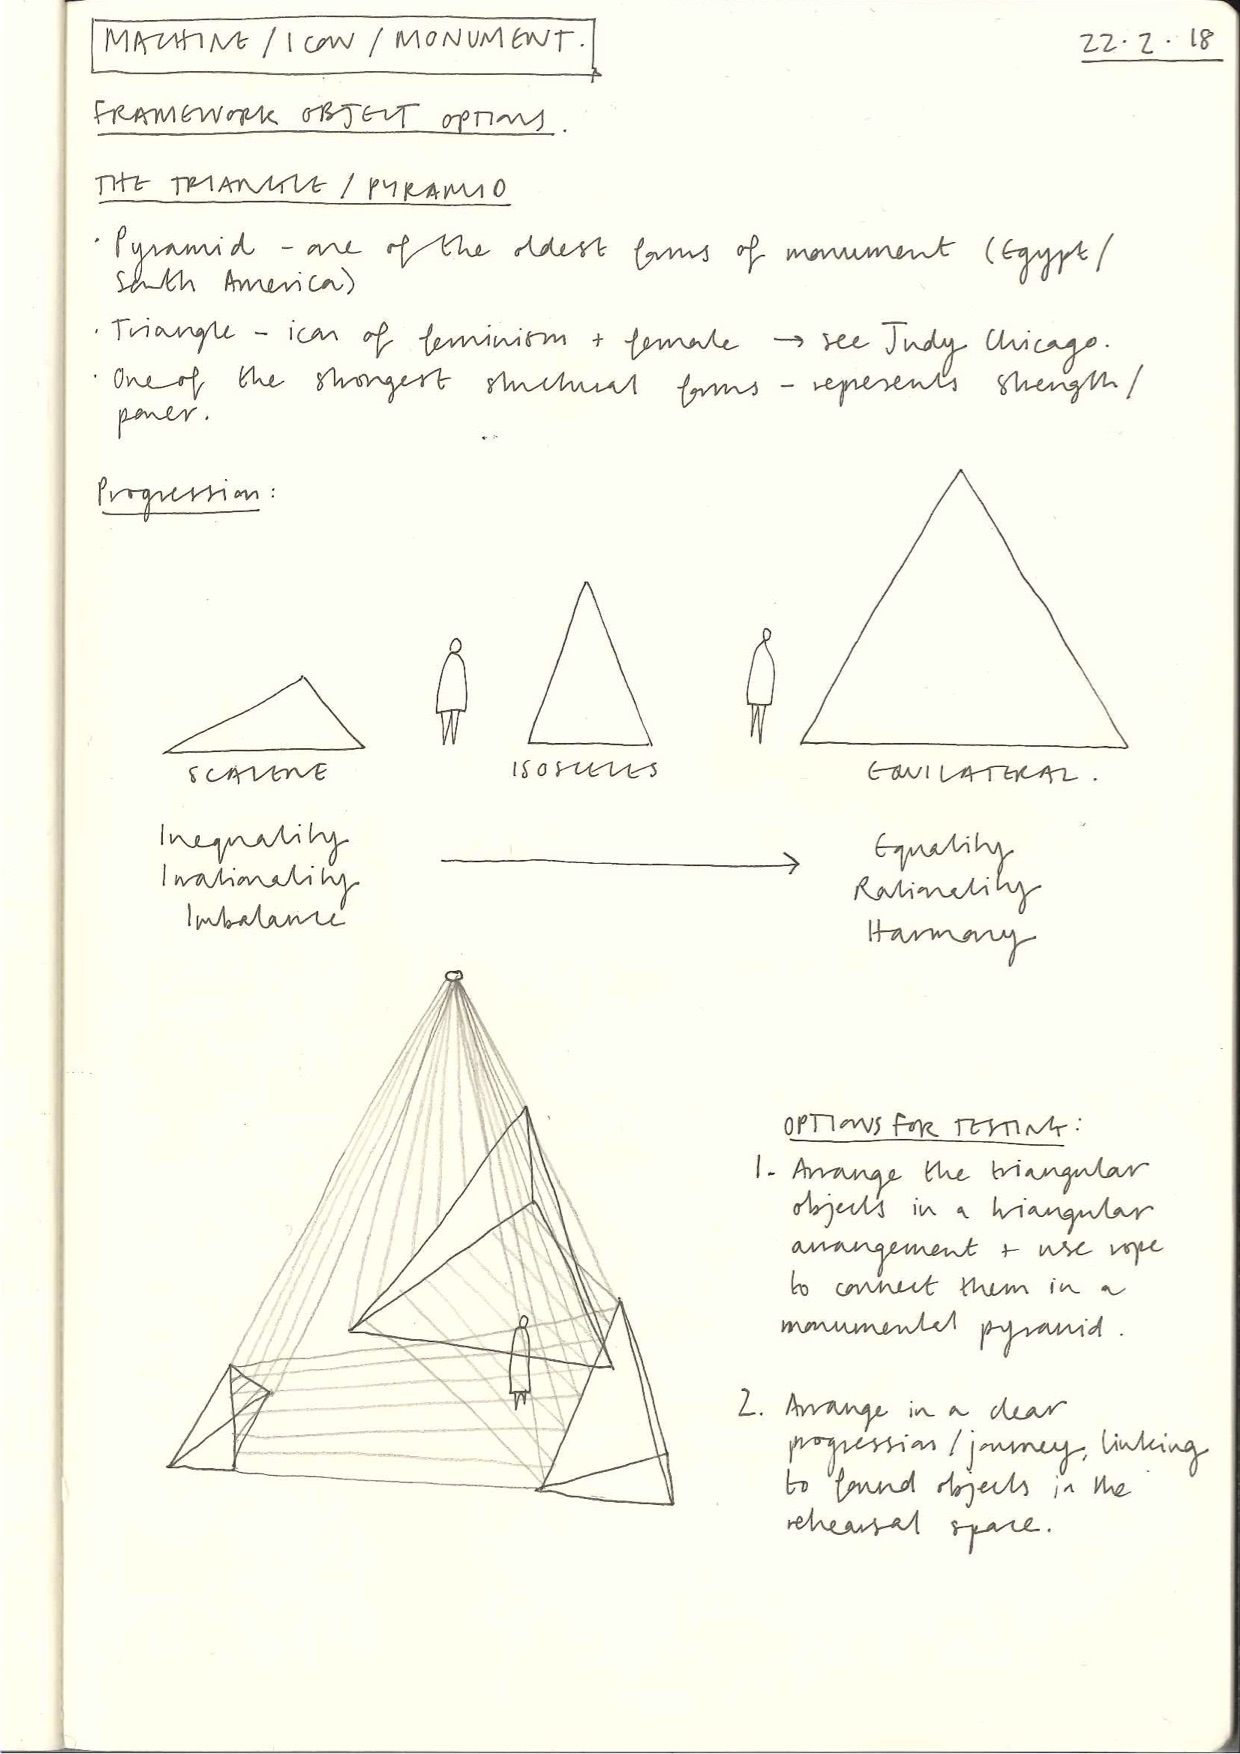 MACHINE / ICON / MONUMENT.
22.2.18
FRAMEWORK OBJECT OPTIONS.
THE TRIANGLE / PYRAMID
· Pyramid – one of the oldest forms of monument (Egypt/
South America)
· Triangle – icon of feminism + female → see Judy Chicago.
· One of the strongest structural forms – represents strength/
power.
Progression:
SCALENE
ISOSCELES
EQUILATERAL.
Inequality
Irrationality
Imbalance
→
Equality
Rationality
Harmony
OPTIONS FOR TESTING:
1. Arrange the triangular
objects in a triangular
arrangement + use rope
to connect them in a
monumental pyramid.
2. Arrange in a clear
progression/journey, linking
to found objects in the
rehearsal space.